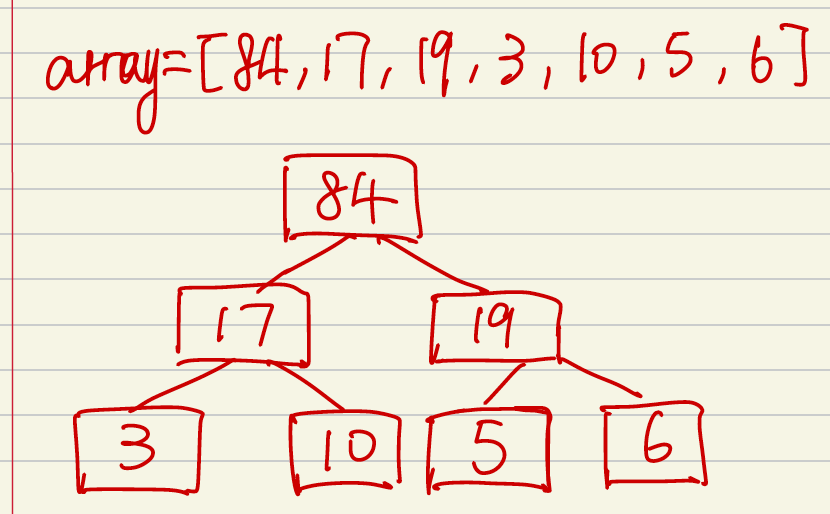 array=[84,17,19,3,10,5,6]
84
17 19
3 10 5 6